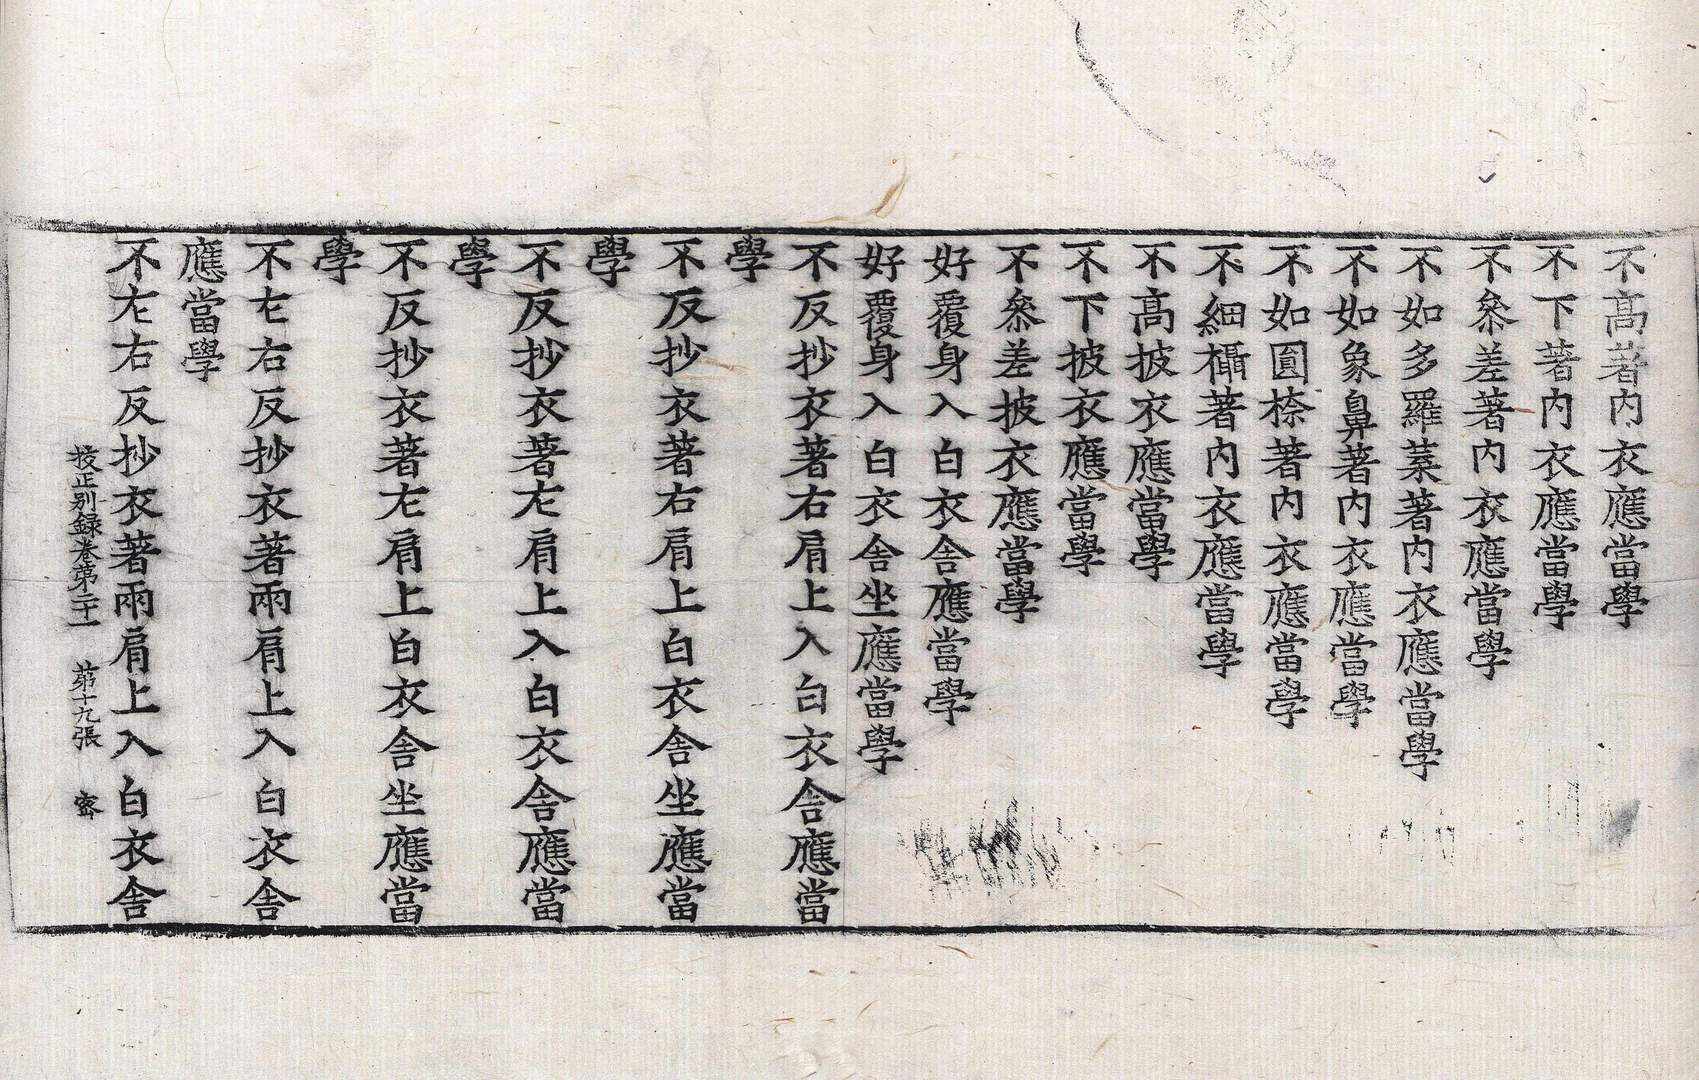 不高著内衣應當學
不下著内衣應當學
不叅差著内衣應當學
不如多羅葉著内衣應當學
不如象鼻著内衣應當學
不如圓㮈著内衣應當學
不細襵著内衣應當學
不高披衣應當學
不下披衣應當學
不叅差披衣應當學
好覆身入白衣舎應當學
好覆身入白衣舎坐應當學
不反抄衣著右肩上入白衣舎應當
學
不反抄衣著右肩上白衣舎坐應當
學
不反抄衣著左肩上入白衣舎應當
學
不反抄衣著左肩上白衣舎坐應當
學
不左右反抄衣著兩肩上入白衣舎
應當學
不左右反抄衣著兩肩上入白衣舎
挍正别録卷第二十一 第十九張 密